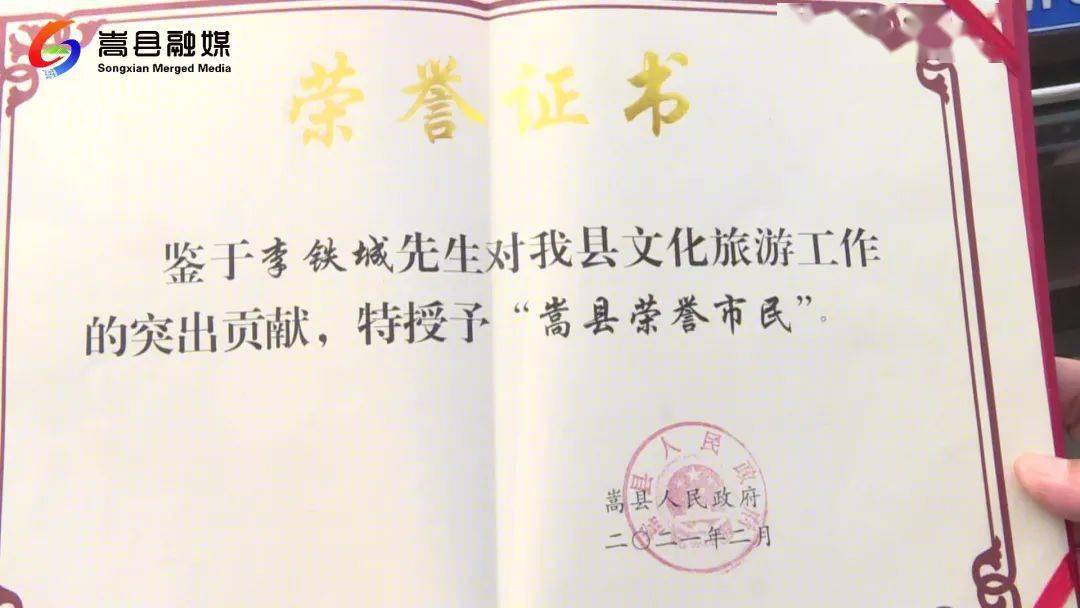 嵩县融媒
Songxian Merged Media
荣誉证书
鉴于李铁城先生对我县文化旅游工作
的突出贡献，特授予“嵩县荣誉市民”。
嵩县人民政府
嵩县人民政府
二〇二一年二月